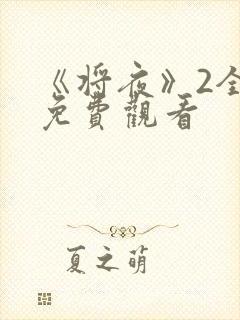 《将夜》2全
免費觀看
夏之萌